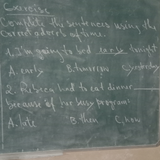 Exercise
Complete the sentences using the
correct adverb of time.
1. I'm going to bed ... tonight
A. early B. tomorrow C. yesterday
2. Rebeca had to eat dinner
because of her busy program.
A. late B. then C. now